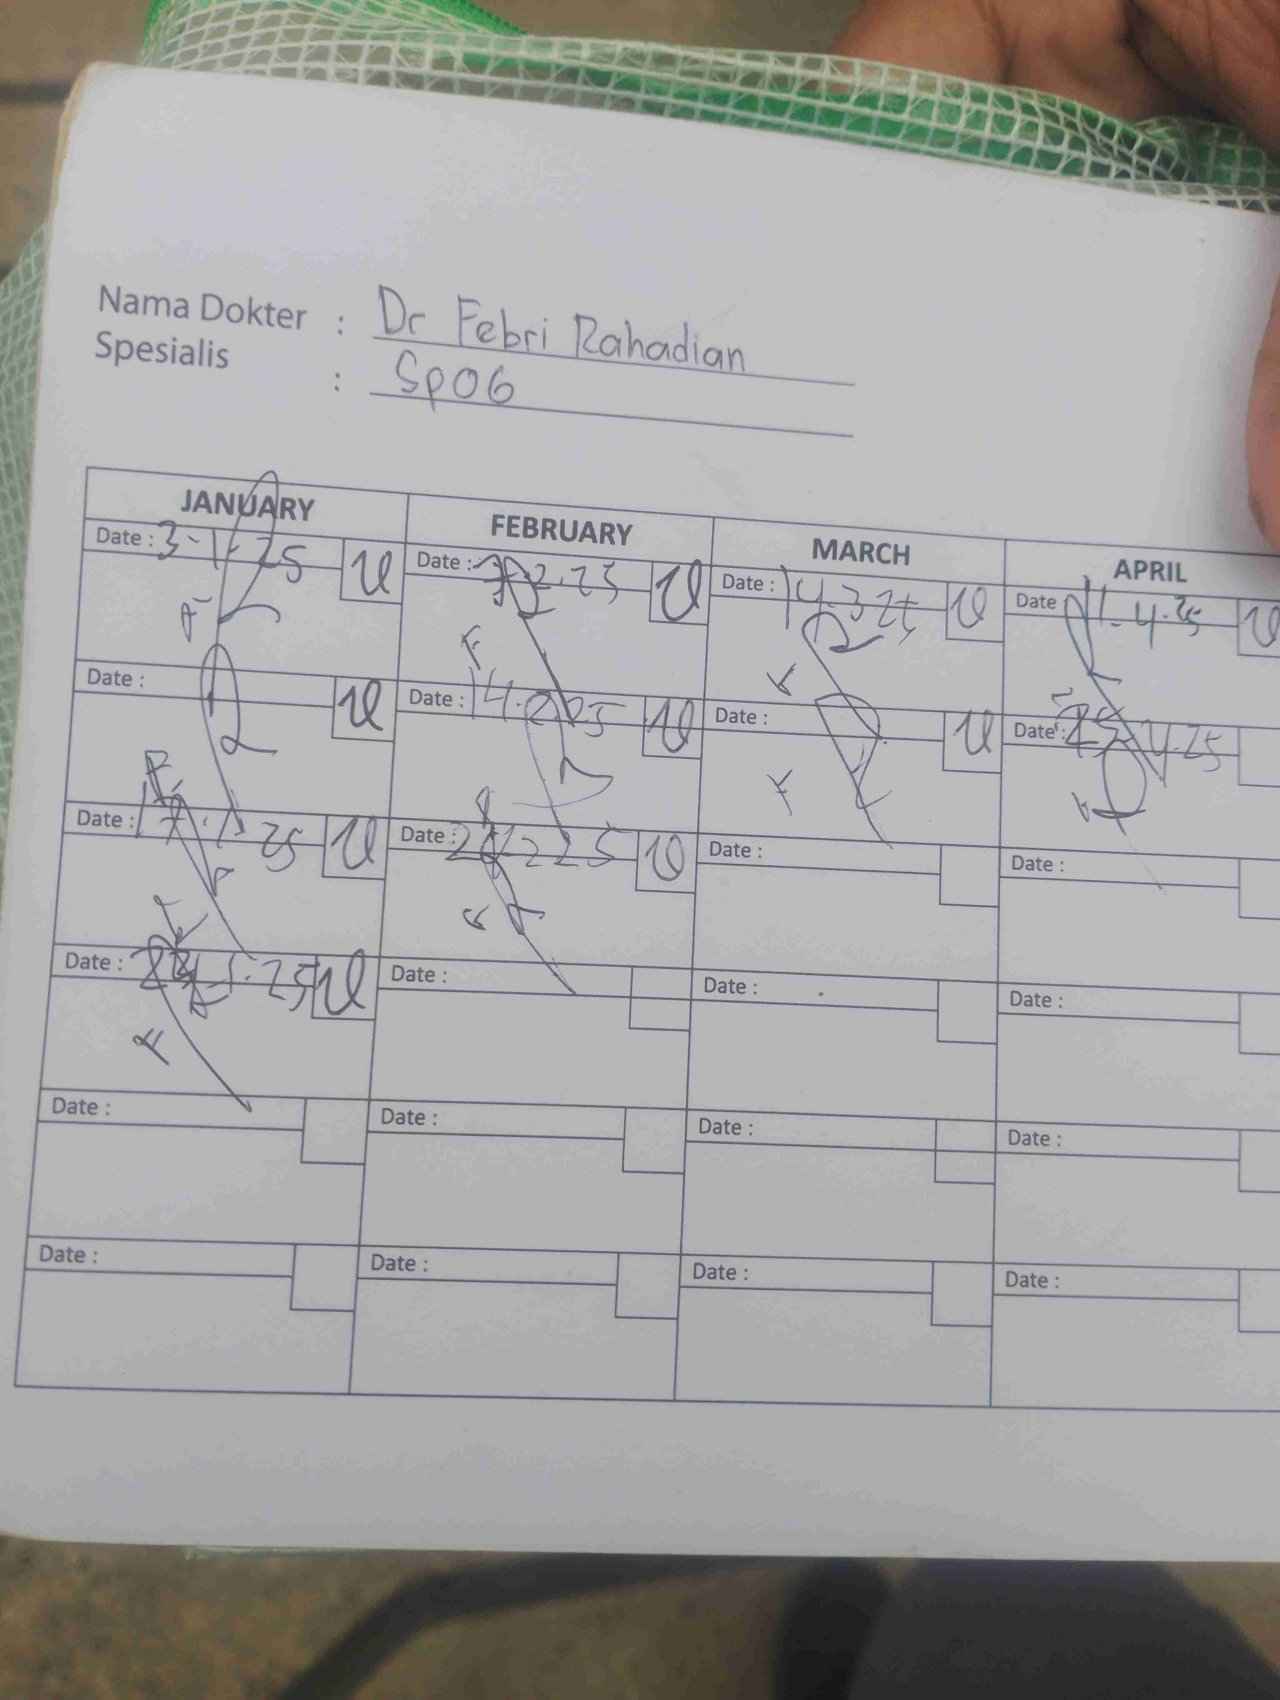 Nama Dokter : Dr Febri Rahadian
Spesialis : SpOG
JANUARY FEBRUARY MARCH APRIL
Date : 3-1-25 Date : 7-2-25 Date : 14.3 25 Date 11-4-25
Date : Date : 14.2.25 Date : Date : 25.4.25
Date : 17.1.25 Date : 28 2 25 Date : Date :
Date : 1.25 Date : Date : Date :
Date : Date : Date : Date :
Date : Date : Date : Date :